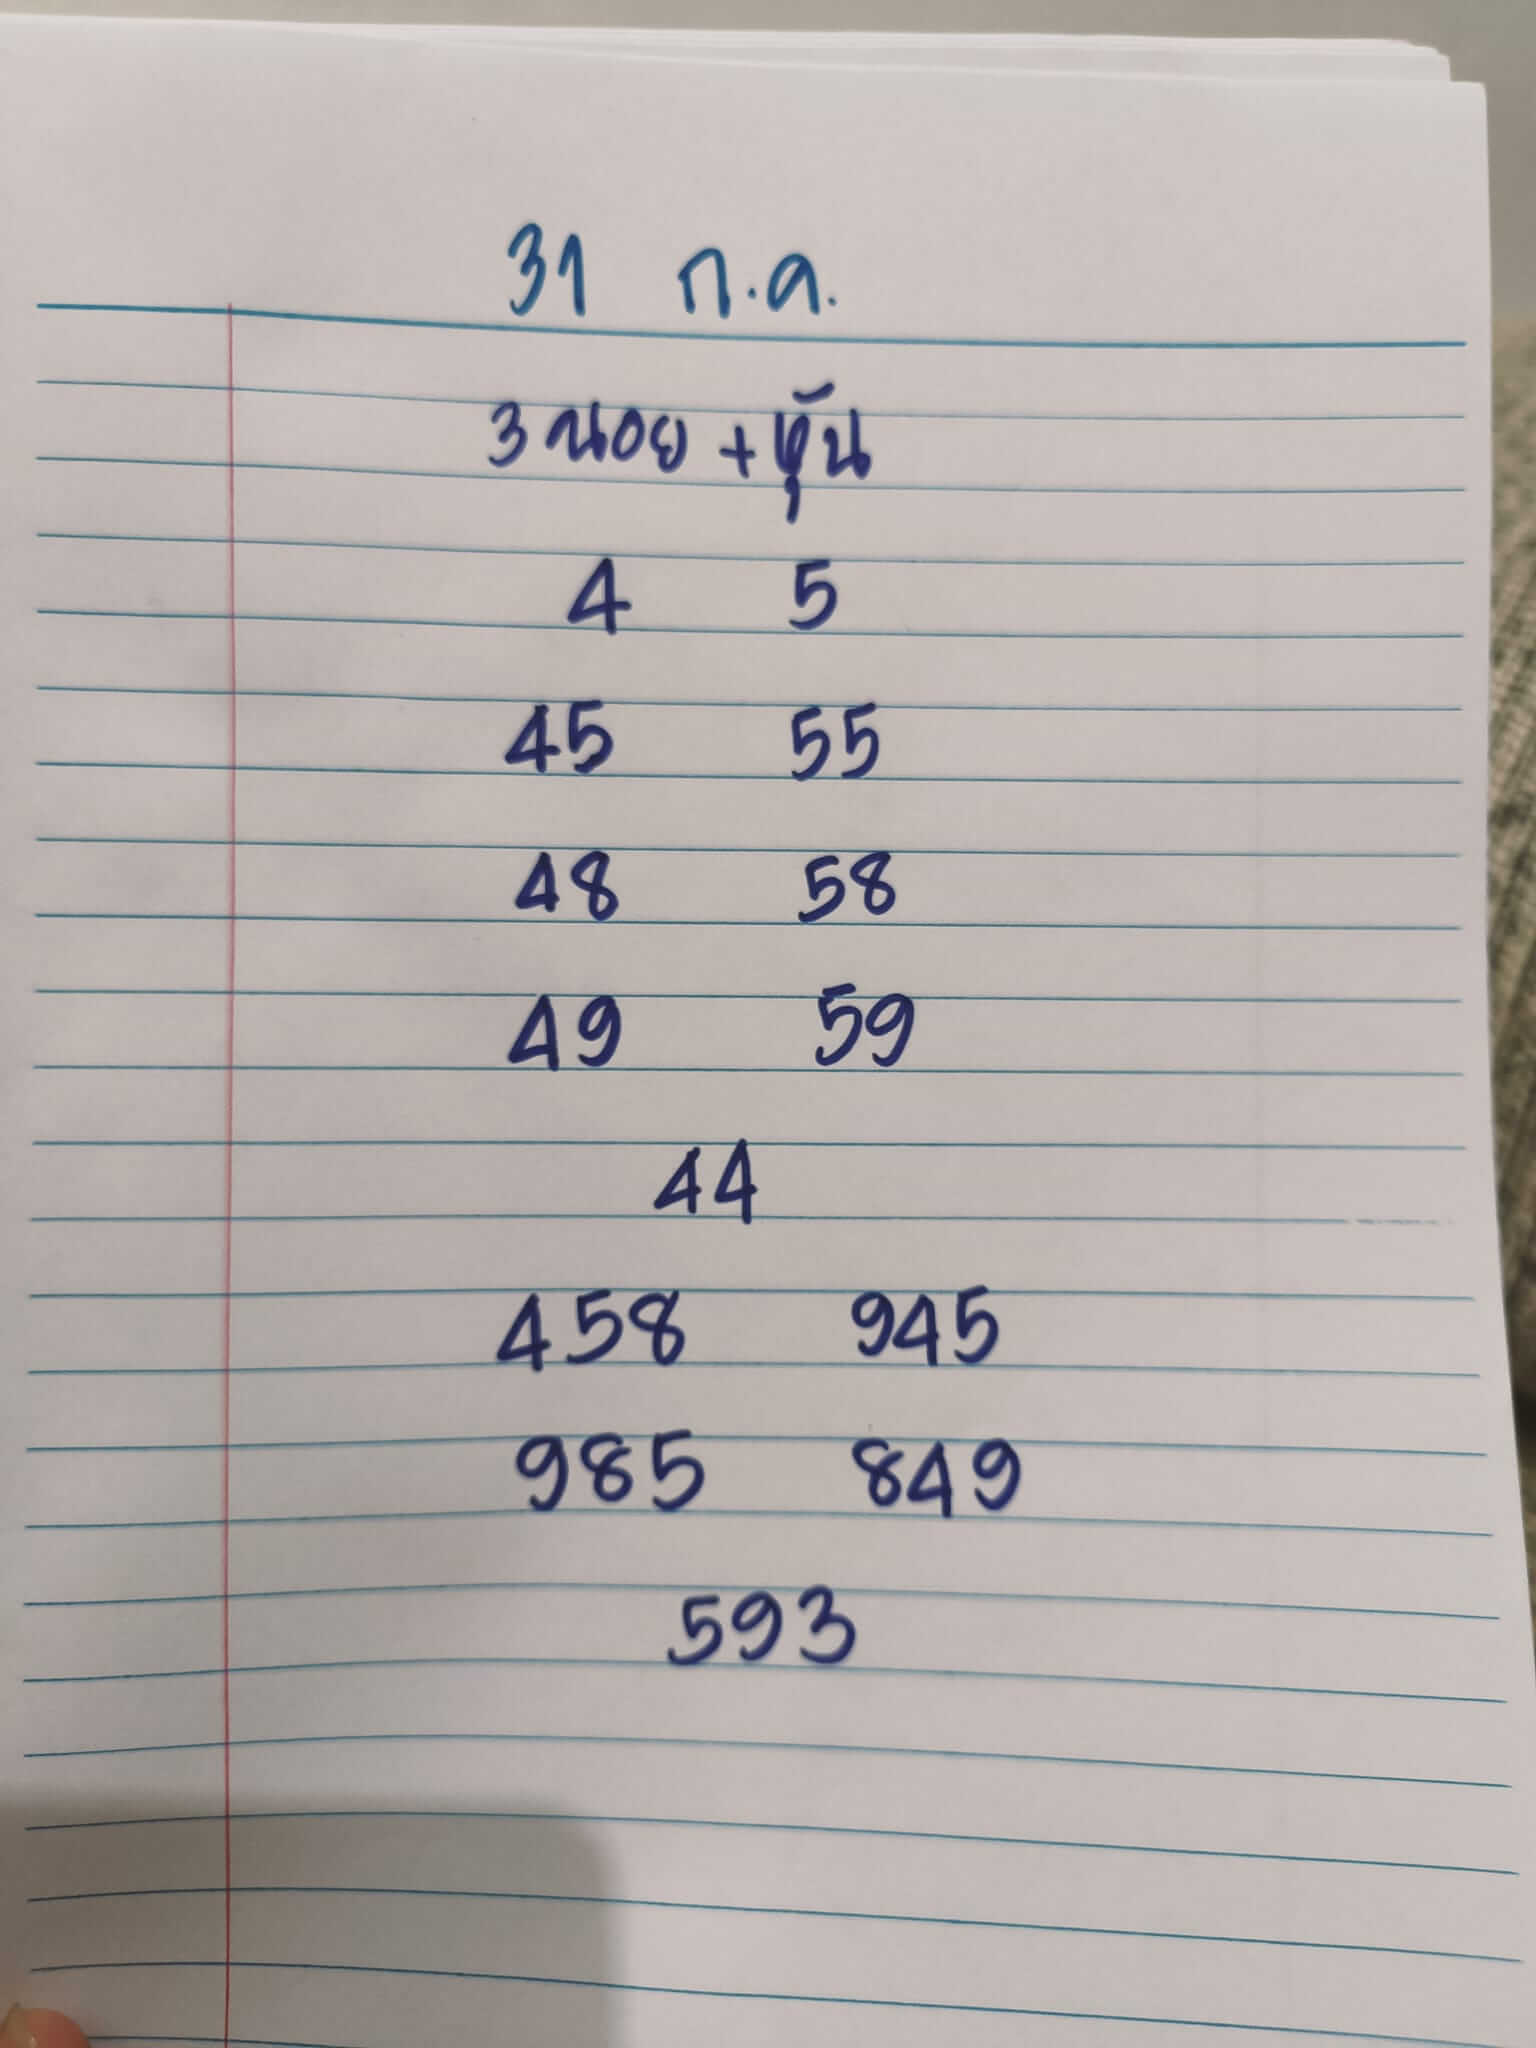 31 ก.ค.
3 นอย + หุ้น
4 5
45 55
48 58
49 59
44
458 945
985 849
593